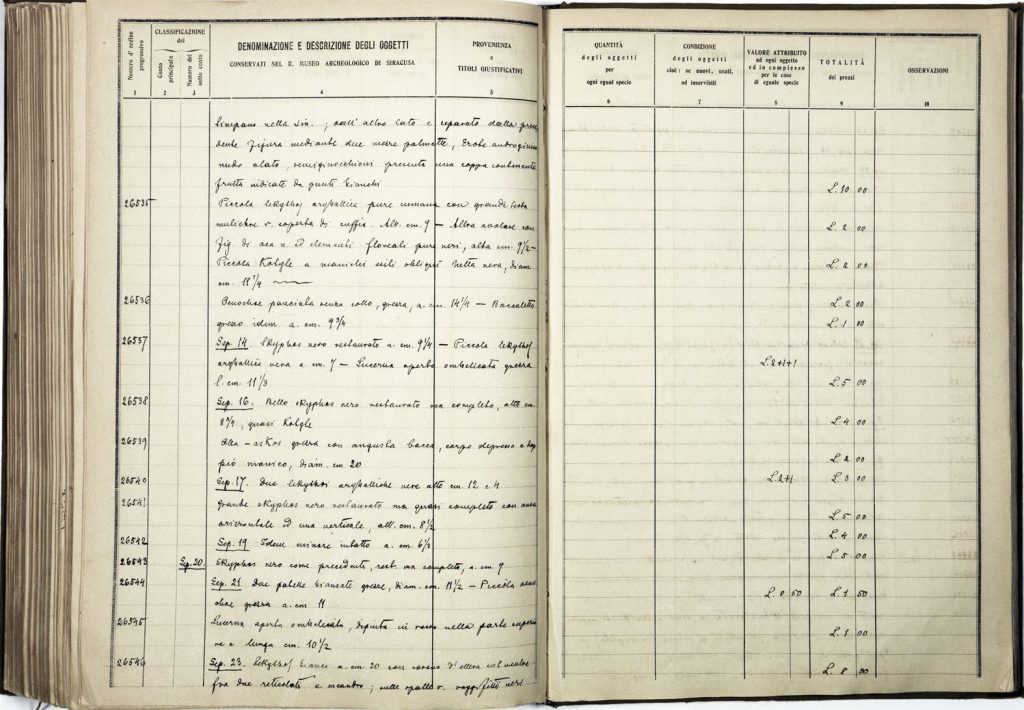 Numero d' ordine progressivo
CLASSIFICAZIONE
del
Conto principale
Numero del sotto conto
DENOMINAZIONE E DESCRIZIONE DEGLI OGGETTI
CONSERVATI NEL R. MUSEO ARCHEOLOGICO DI SIRACUSA
PROVENIENZA
e
TITOLI GIUSTIFICATIVI
1 2 3 4 5
timpano nella sin.; dall' altro lato e separato dalla
dente figura mediante due nere palmette, Erote androgino
nudo alato, semiginocchioni presenta una coppa contenente
frutta indicate da punti bianchi
26535 Piccola lekythos aryballica pure cumana con grande testa
muliebre r. coperta di cuffia. Alt. cm. 9 — Altra
fig. di oca n. ed elementi floreali pure neri, alta cm. 9 1/2 —
Piccola Kotyle a manichi obliqui tutta nera, diam.
cm. 11 1/4
26536 Oenochoe panciuta senza collo, grezza, a. cm. 14 1/4 — Boccaletto
grezzo idem a. cm. 9 3/4
26537 Sep. 14. Skyphos nero restaurato a. cm. 9 1/4 — Piccola lekythos
aryballica nera a cm. 7 — Lucerna aperta ombelicata grezza
l. cm. 11 1/3
26538 Sep. 16. Bello skyphos nero restaurato ma completo, alto cm.
8 3/4, quasi Kotyle
26539 Olla - askos grezza con angusta bocca, corpo depresso e
pio manico, diam. cm 20
26540 Sep. 17. Due lekythoi aryballiche nere alte cm. 12 e 4
26541 Grande skyphos nero restaurato ma quasi completo con ansa
orizzontale ed una verticale, alt. cm. 8 1/2
26542 Sep. 19 Idem minore intatto a. cm. 6 1/3
26543 Sep. 20. Skyphos nero come precedente, rest. ma completo, a cm. 9
26544 Sep. 21 Due patelle biansate grezze, diam. cm. 11 1/2 — Piccola oeno
choe grezza a. cm 11
26545 Lucerna aperta ombelicata, dipinta in rosso nella parte superio
re e lunga cm. 10 1/2
26546 Sep. 23. Lekythos bianca a cm. 20 con corona d'ellera sul ventre
fra due reticolati e meandro; sulle spalle r. neri
QUANTITÀ
degli oggetti
per
ogni egual specie
CONDIZIONE
degli oggetti
cioè: se nuovi, usati,
od inservibili
VALORE ATTRIBUITO
ad ogni oggetto
ed in complesso
per le cose
di eguale specie
TOTALITÀ
dei prezzi
OSSERVAZIONI
6 7 8 9 10
L. 10 00
L. 2 00
L. 2 00
L. 2 00
L. 1 00
L. 2+1+1
L. 5 00
L. 4 00
L. 2 00
L. 2+1 L. 3 00
L. 5 00
L. 4 00
L. 5 00
L. 0 50 L. 1 50
L. 1 00
L. 8 00